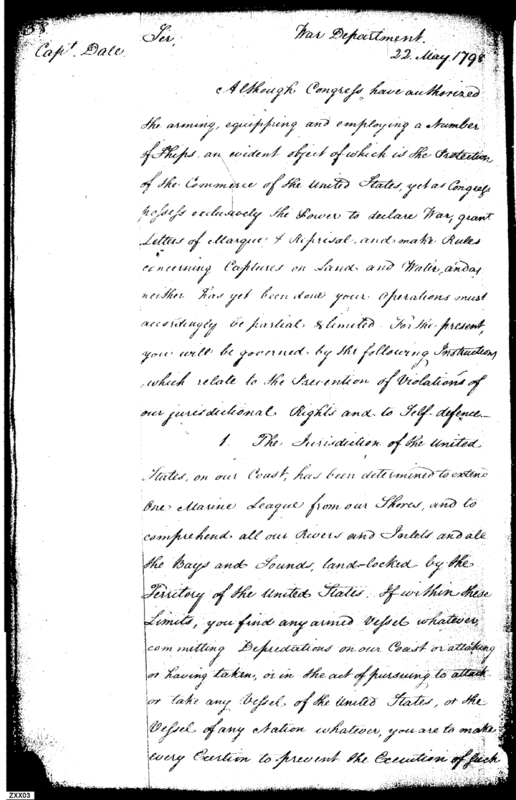 38
Capt. Dale
Sir,
War Department.
22 May 1798
Although Congress have authorized
the arming, equipping and employing a Number
of Ships, an evident object of which is the Protection
of the Commerce of the United States, yet as Congress
possess exclusively the Power to declare War, grant
Letters of Marque & Reprisal, and make Rules
concerning Captures on Land and Water, and as
neither has yet been done your operations must
accordingly be partial & limited. For the present,
you will be governed by the following Instructions,
which relate to the Prevention of Violations of
our jurisdictional Rights and to Self-defence—
1. The Jurisdiction of the United
States, on our Coast, has been determined to extend
One Marine League from our Shores, and to
comprehend all our Rivers and Inlets and all
the Bays and Sounds, land-locked by the
Territory of the United States. If within these
Limits, you find any armed Vessel whatever,
committing Depredations on our Coast or attacking
or having taken, or in the act of pursuing to attack
or take any Vessel of the United States, or the
Vessel of any Nation whatever, you are to make
every Exertion to prevent the Execution of such
ZXX03